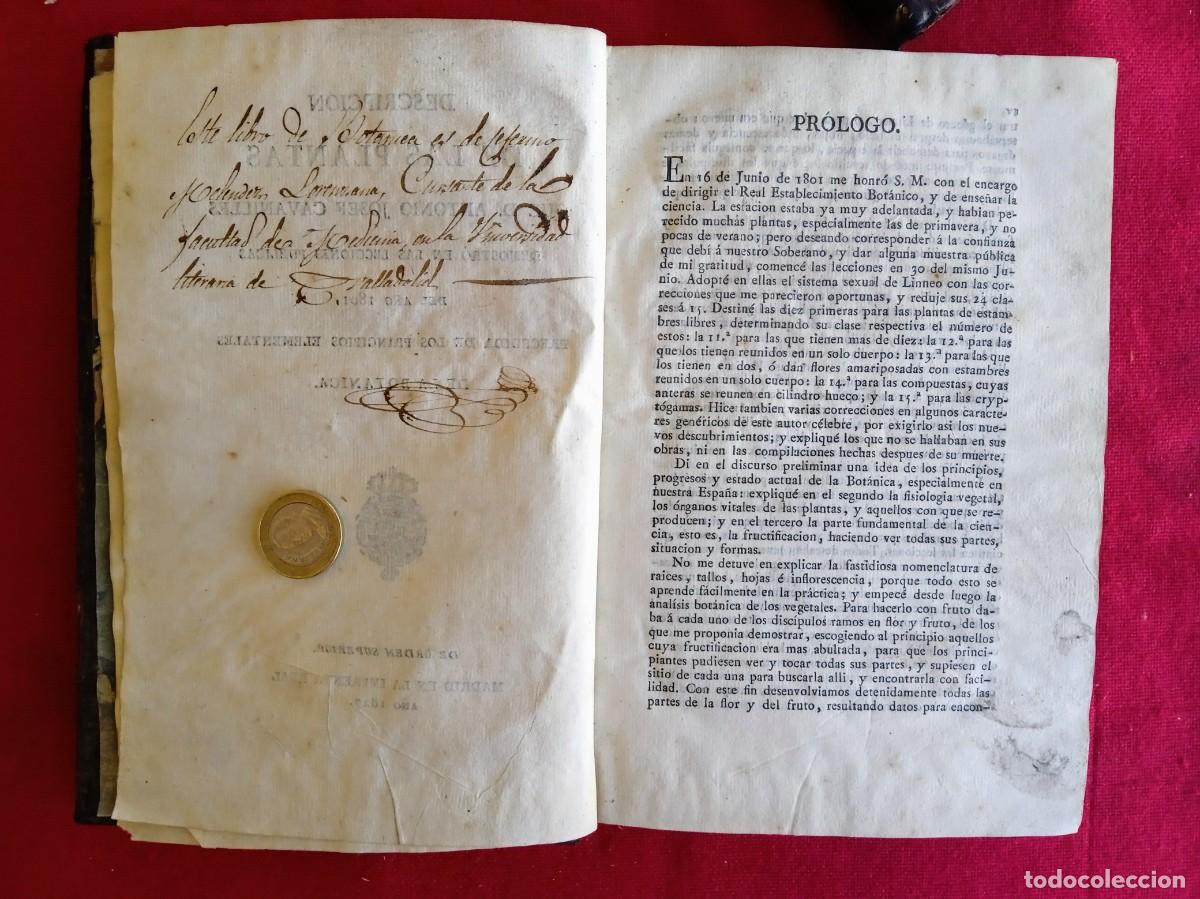 Este libro de Botanica es de Ceferino
Melendez, Lorenzana, Cursante de la
facultad de Medicina, en la Universidad
literaria de Valladolid
DESCRIPCION
DE LAS PLANTAS
D. ANTONIO JOSEF CAVANILLES
DEMOSTRÓ EN LAS LECCIONES PÚBLICAS
DEL AÑO 1801,
PRECEDIDA DE LOS PRINCIPIOS ELEMENTALES
DE LA BOTANICA.
DE ÓRDEN SUPERIOR.
MADRID EN LA IMPRENTA REAL
AÑO 1827.
PRÓLOGO.
En 16 de Junio de 1801 me honró S. M. con el encargo
de dirigir el Real Establecimiento Botánico, y de enseñar la
ciencia. La estacion estaba ya muy adelantada, y habian pe-
recido muchas plantas, especialmente las de primavera, y no
pocas de verano; pero deseando corresponder á la confianza
que debí á nuestro Soberano, y dar alguna muestra pública
de mi gratitud, comencé las lecciones en 30 del mismo Ju-
nio. Adopté en ellas el sistema sexual de Linneo con las cor-
recciones que me parecieron oportunas, y reduje sus 24 cla-
ses á 15. Destiné las diez primeras para las plantas de estam-
bres libres, determinando su clase respectiva el número de
estos: la 11.ª para las que tienen mas de diez: la 12.ª para las
que los tienen reunidos en un solo cuerpo: la 13.ª para las que
los tienen en dos, ó dan flores amariposadas con estambres
reunidos en un solo cuerpo: la 14.ª para las compuestas, cuyas
anteras se reunen en cilindro hueco; y la 15.ª para las cryp-
tógamas. Hice tambien varias correcciones en algunos caracte-
res genéricos de este autor célebre, por exigirlo asi los nue-
vos descubrimientos; y expliqué los que no se hallaban en sus
obras, ni en las compilaciones hechas despues de su muerte.
Di en el discurso preliminar una idea de los principios,
progresos y estado actual de la Botánica, especialmente en
nuestra España: expliqué en el segundo la fisiologia vegetal,
los órganos vitales de las plantas, y aquellos con que se re-
producen; y en el tercero la parte fundamental de la cien-
cia, esto es, la fructificacion, haciendo ver todas sus partes,
situacion y formas.
No me detuve en explicar la fastidiosa nomenclatura de
raices, tallos, hojas é inflorescencia, porque todo esto se
aprende fácilmente en la práctica; y empecé desde luego la
analísis botánica de los vegetales. Para hacerlo con fruto da-
ba á cada uno de los discípulos ramos en flor y fruto, de los
que me proponia demostrar, escogiendo al principio aquellos
cuya fructificacion era mas abultada, para que los princi-
piantes pudiesen ver y tocar todas sus partes, y supiesen el
sitio de cada una para buscarla alli, y encontrarla con faci-
lidad. Con este fin desenvolviamos detenidamente todas las
partes de la flor y del fruto, resultando datos para encon-
todocoleccion